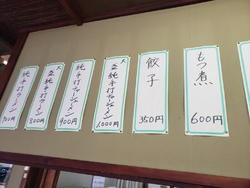 もつ煮
600円
餃子
350円
大盛 純手打チャーシューメン
1,000円
純手打チャーシューメン
900円
大盛 純手打ラーメン
800円
純手打ラーメン
700円